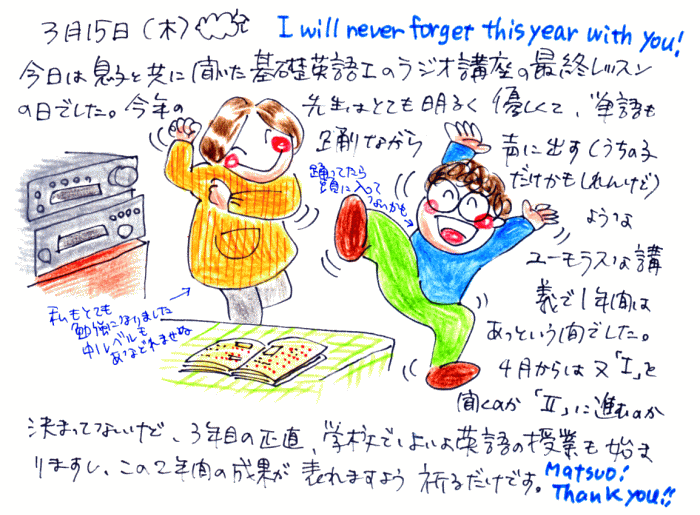 3月15日（木） I will never forget this year with you!
今日は息子と共に聞いた基礎英語Iのラジオ講座の最終レッスン
の日でした。今年の先生はとても明るく優しくて、単語も
踊りながら声に出す（うちの子
だけかもしれんけど）
ような
ユーモラスな講
義で1年間は
あっという間でした。
4月からは又「I」を
聞くのか「II」に進むのか
決まってないけど、3年目の正直、学校でいよいよ英語の授業も始ま
りますし、この2年間の成果が表れますよう祈るだけです。
Matsuo!
Thank you!!
踊ってたら
頭に入って
ないかも
私もとても
勉強になりました
中1レベルも
あなどれませぬ